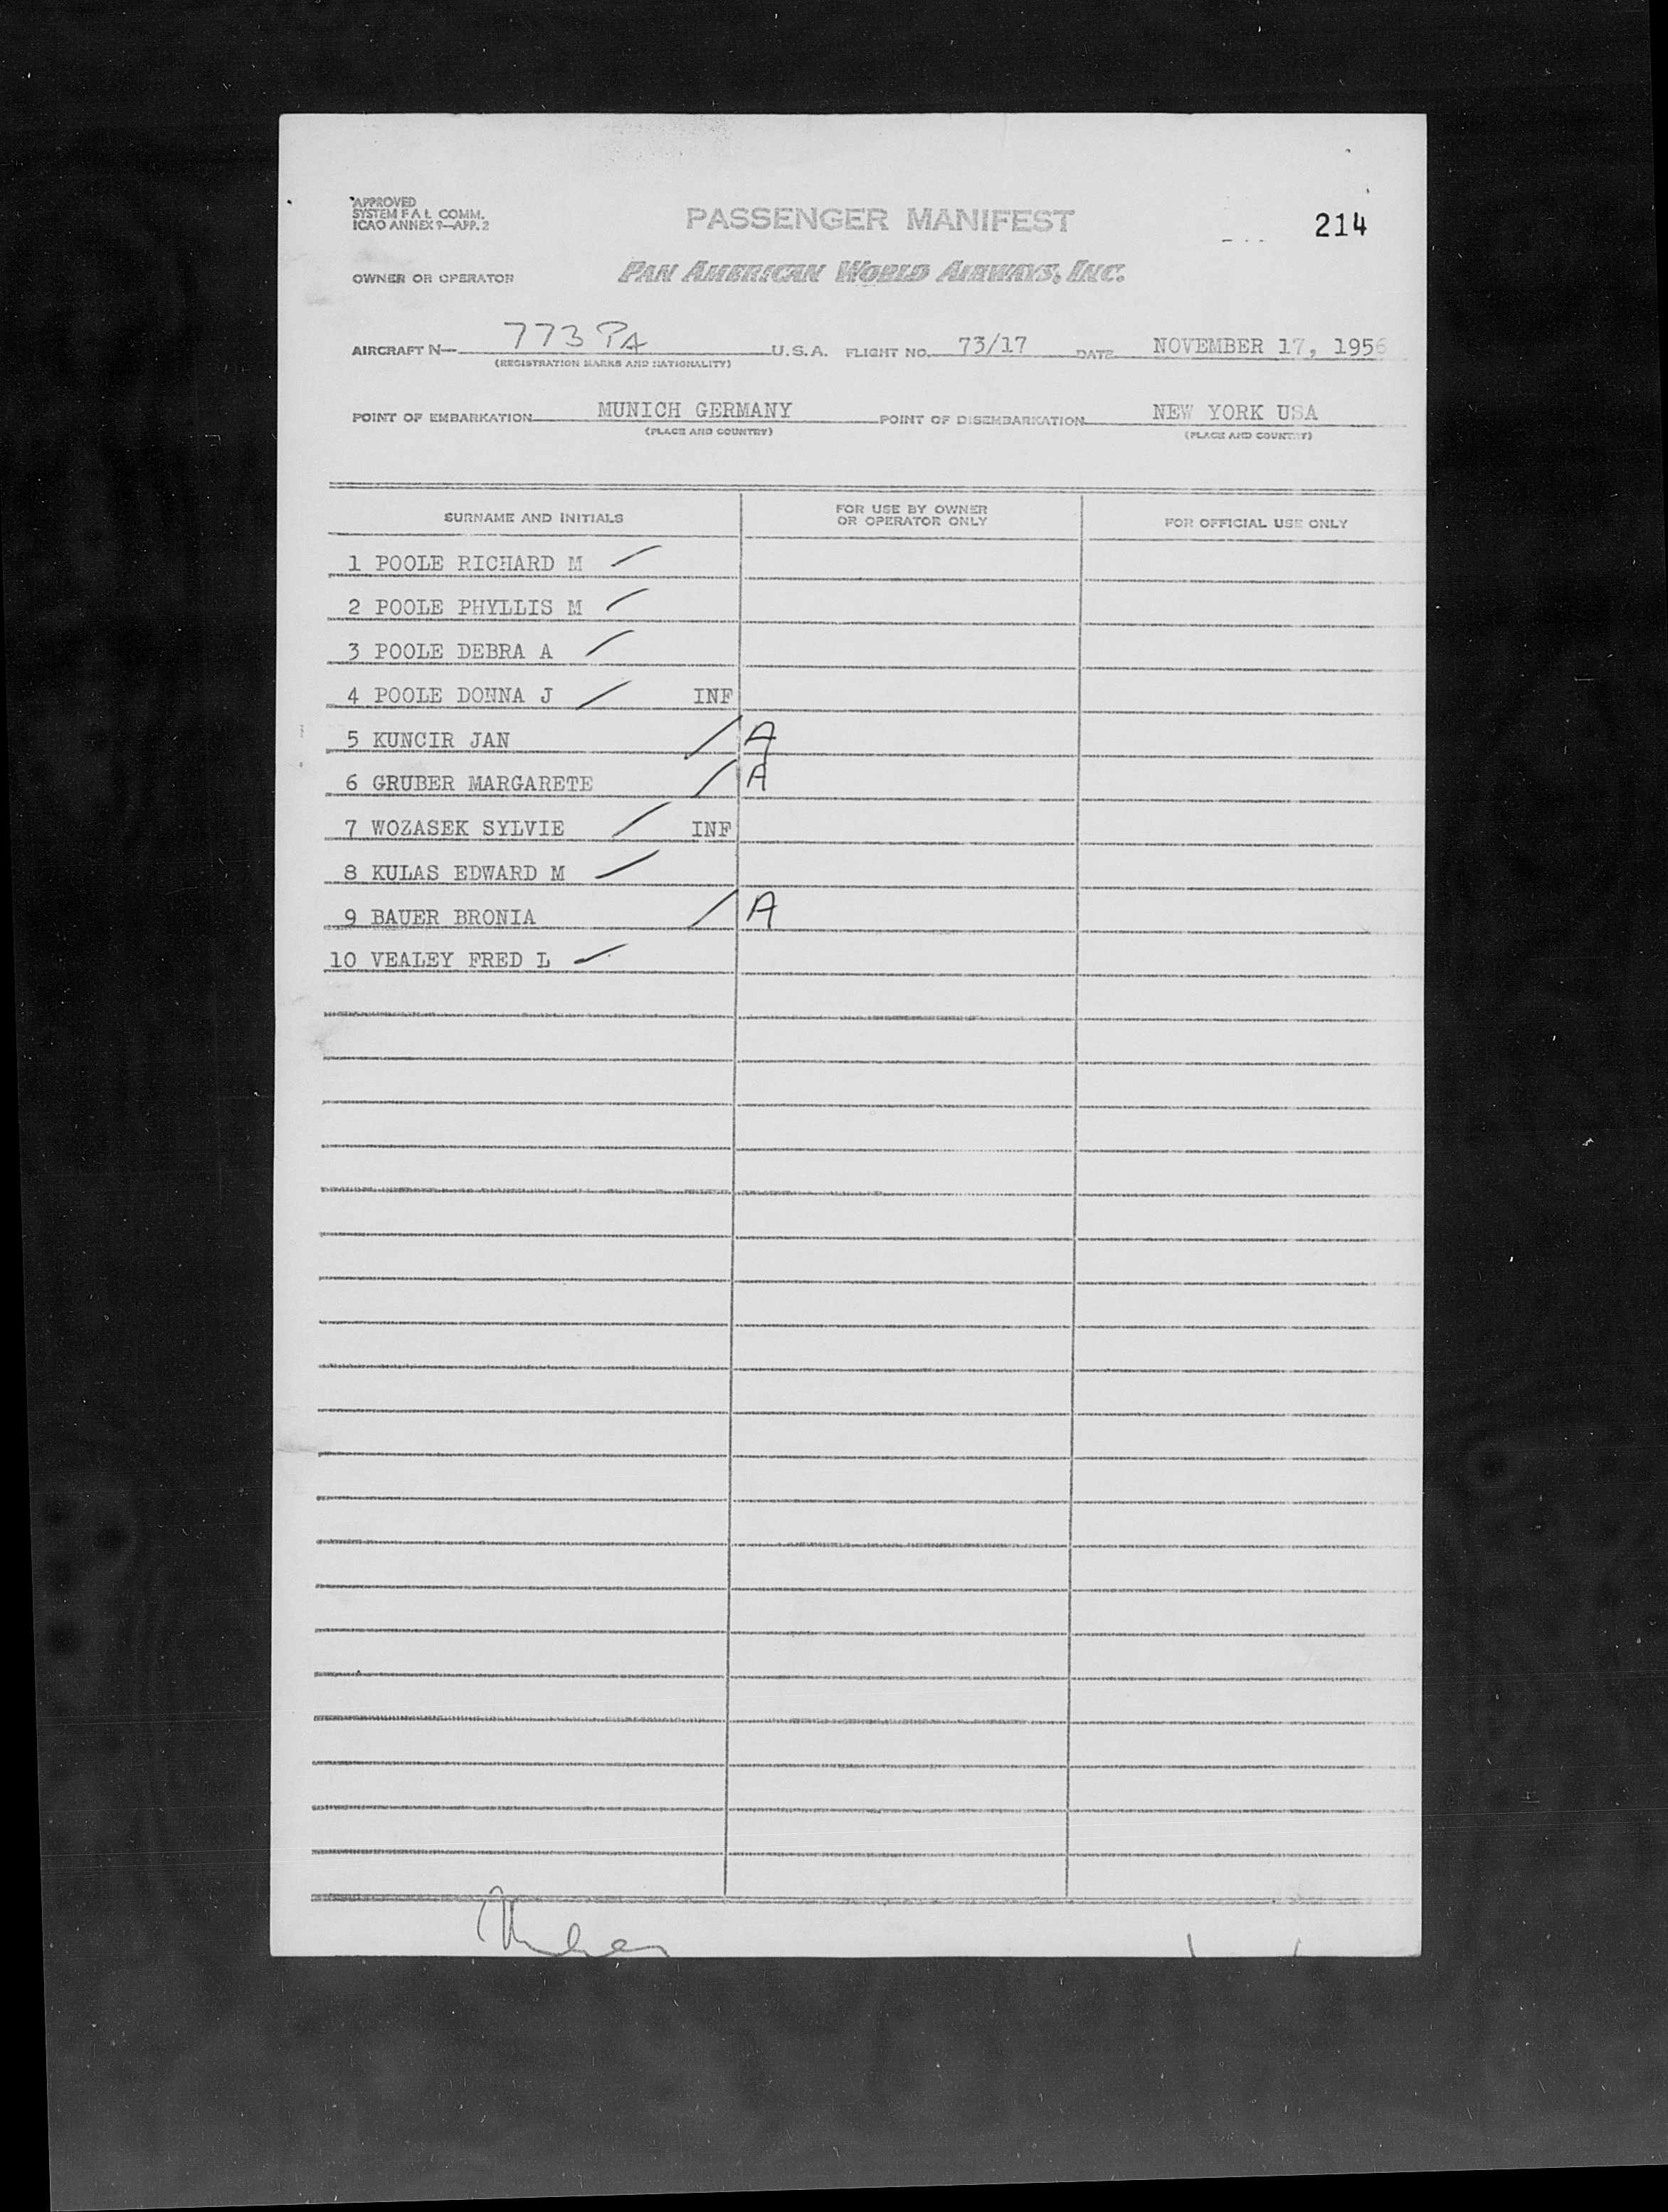 APPROVED
SYSTEM F A L COMM.
ICAO ANNEX 9—APP. 2
PASSENGER MANIFEST
214
OWNER OR OPERATOR
PAN AMERICAN WORLD AIRWAYS, INC.
AIRCRAFT N— 773 PA U.S.A. FLIGHT NO. 73/17 DATE NOVEMBER 17, 1956
(REGISTRATION MARKS AND NATIONALITY)
POINT OF EMBARKATION MUNICH GERMANY POINT OF DISEMBARKATION NEW YORK USA
(PLACE AND COUNTRY) (PLACE AND COUNTRY)
SURNAME AND INITIALS
FOR USE BY OWNER
OR OPERATOR ONLY
FOR OFFICIAL USE ONLY
1 POOLE RICHARD M
2 POOLE PHYLLIS M
3 POOLE DEBRA A
4 POOLE DONNA J INF
5 KUNCIR JAN A
6 GRUBER MARGARETE A
7 WOZASEK SYLVIE INF
8 KULAS EDWARD M
9 BAUER BRONIA A
10 VEALEY FRED L